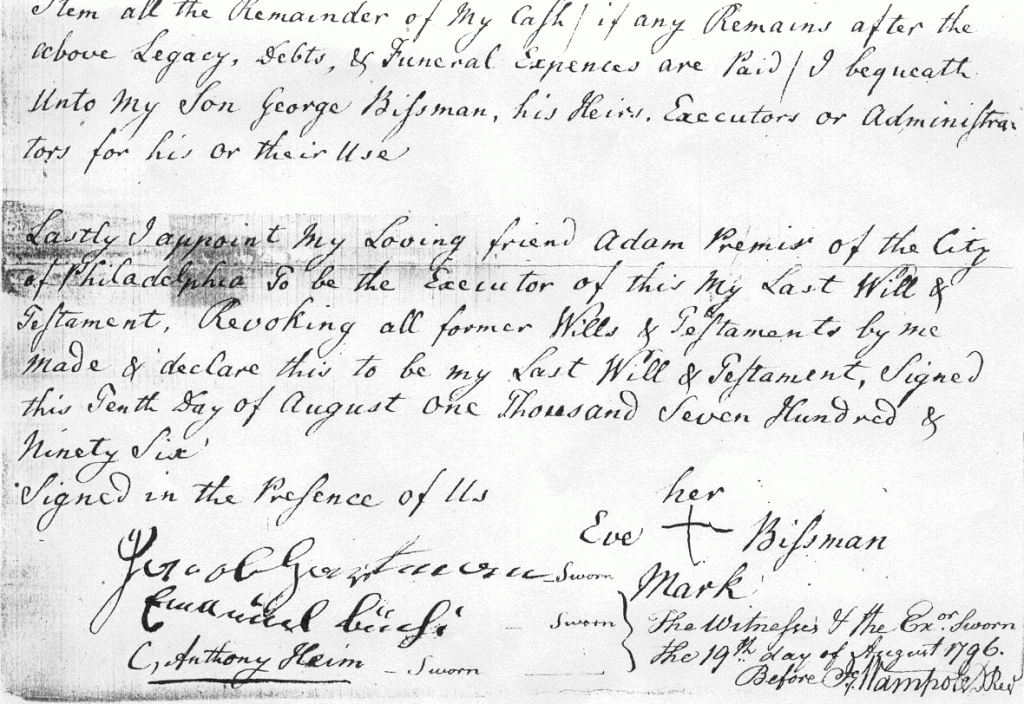 Item all the Remainder of My Cash / if any Remains after the
above Legacy, Debts, & Funeral Expences are Paid / I bequeath
Unto My Son George Biſsman, his Heirs, Executors or Administra-
tors for his or their Use
Lastly I appoint My Loving friend Adam Premir of the City
of Philadelphia To be the Executor of this My Last Will &
Teſtament, Revoking all former Wills & Teſtaments by me
Made & declare this to be my Last Will & Teſtament, Signed
this Tenth Day of August One Thousand Seven Hundred &
Ninety Six
Signed in the Preſence of Us
her
Eve + Biſsman
Mark
Jacob Hartman - Sworn
Emanuel - Sworn
C, Anthony Heim - Sworn
The Witneſses & the Exor. Sworn
the 19th day of August 1796.
Before Wampole DReg